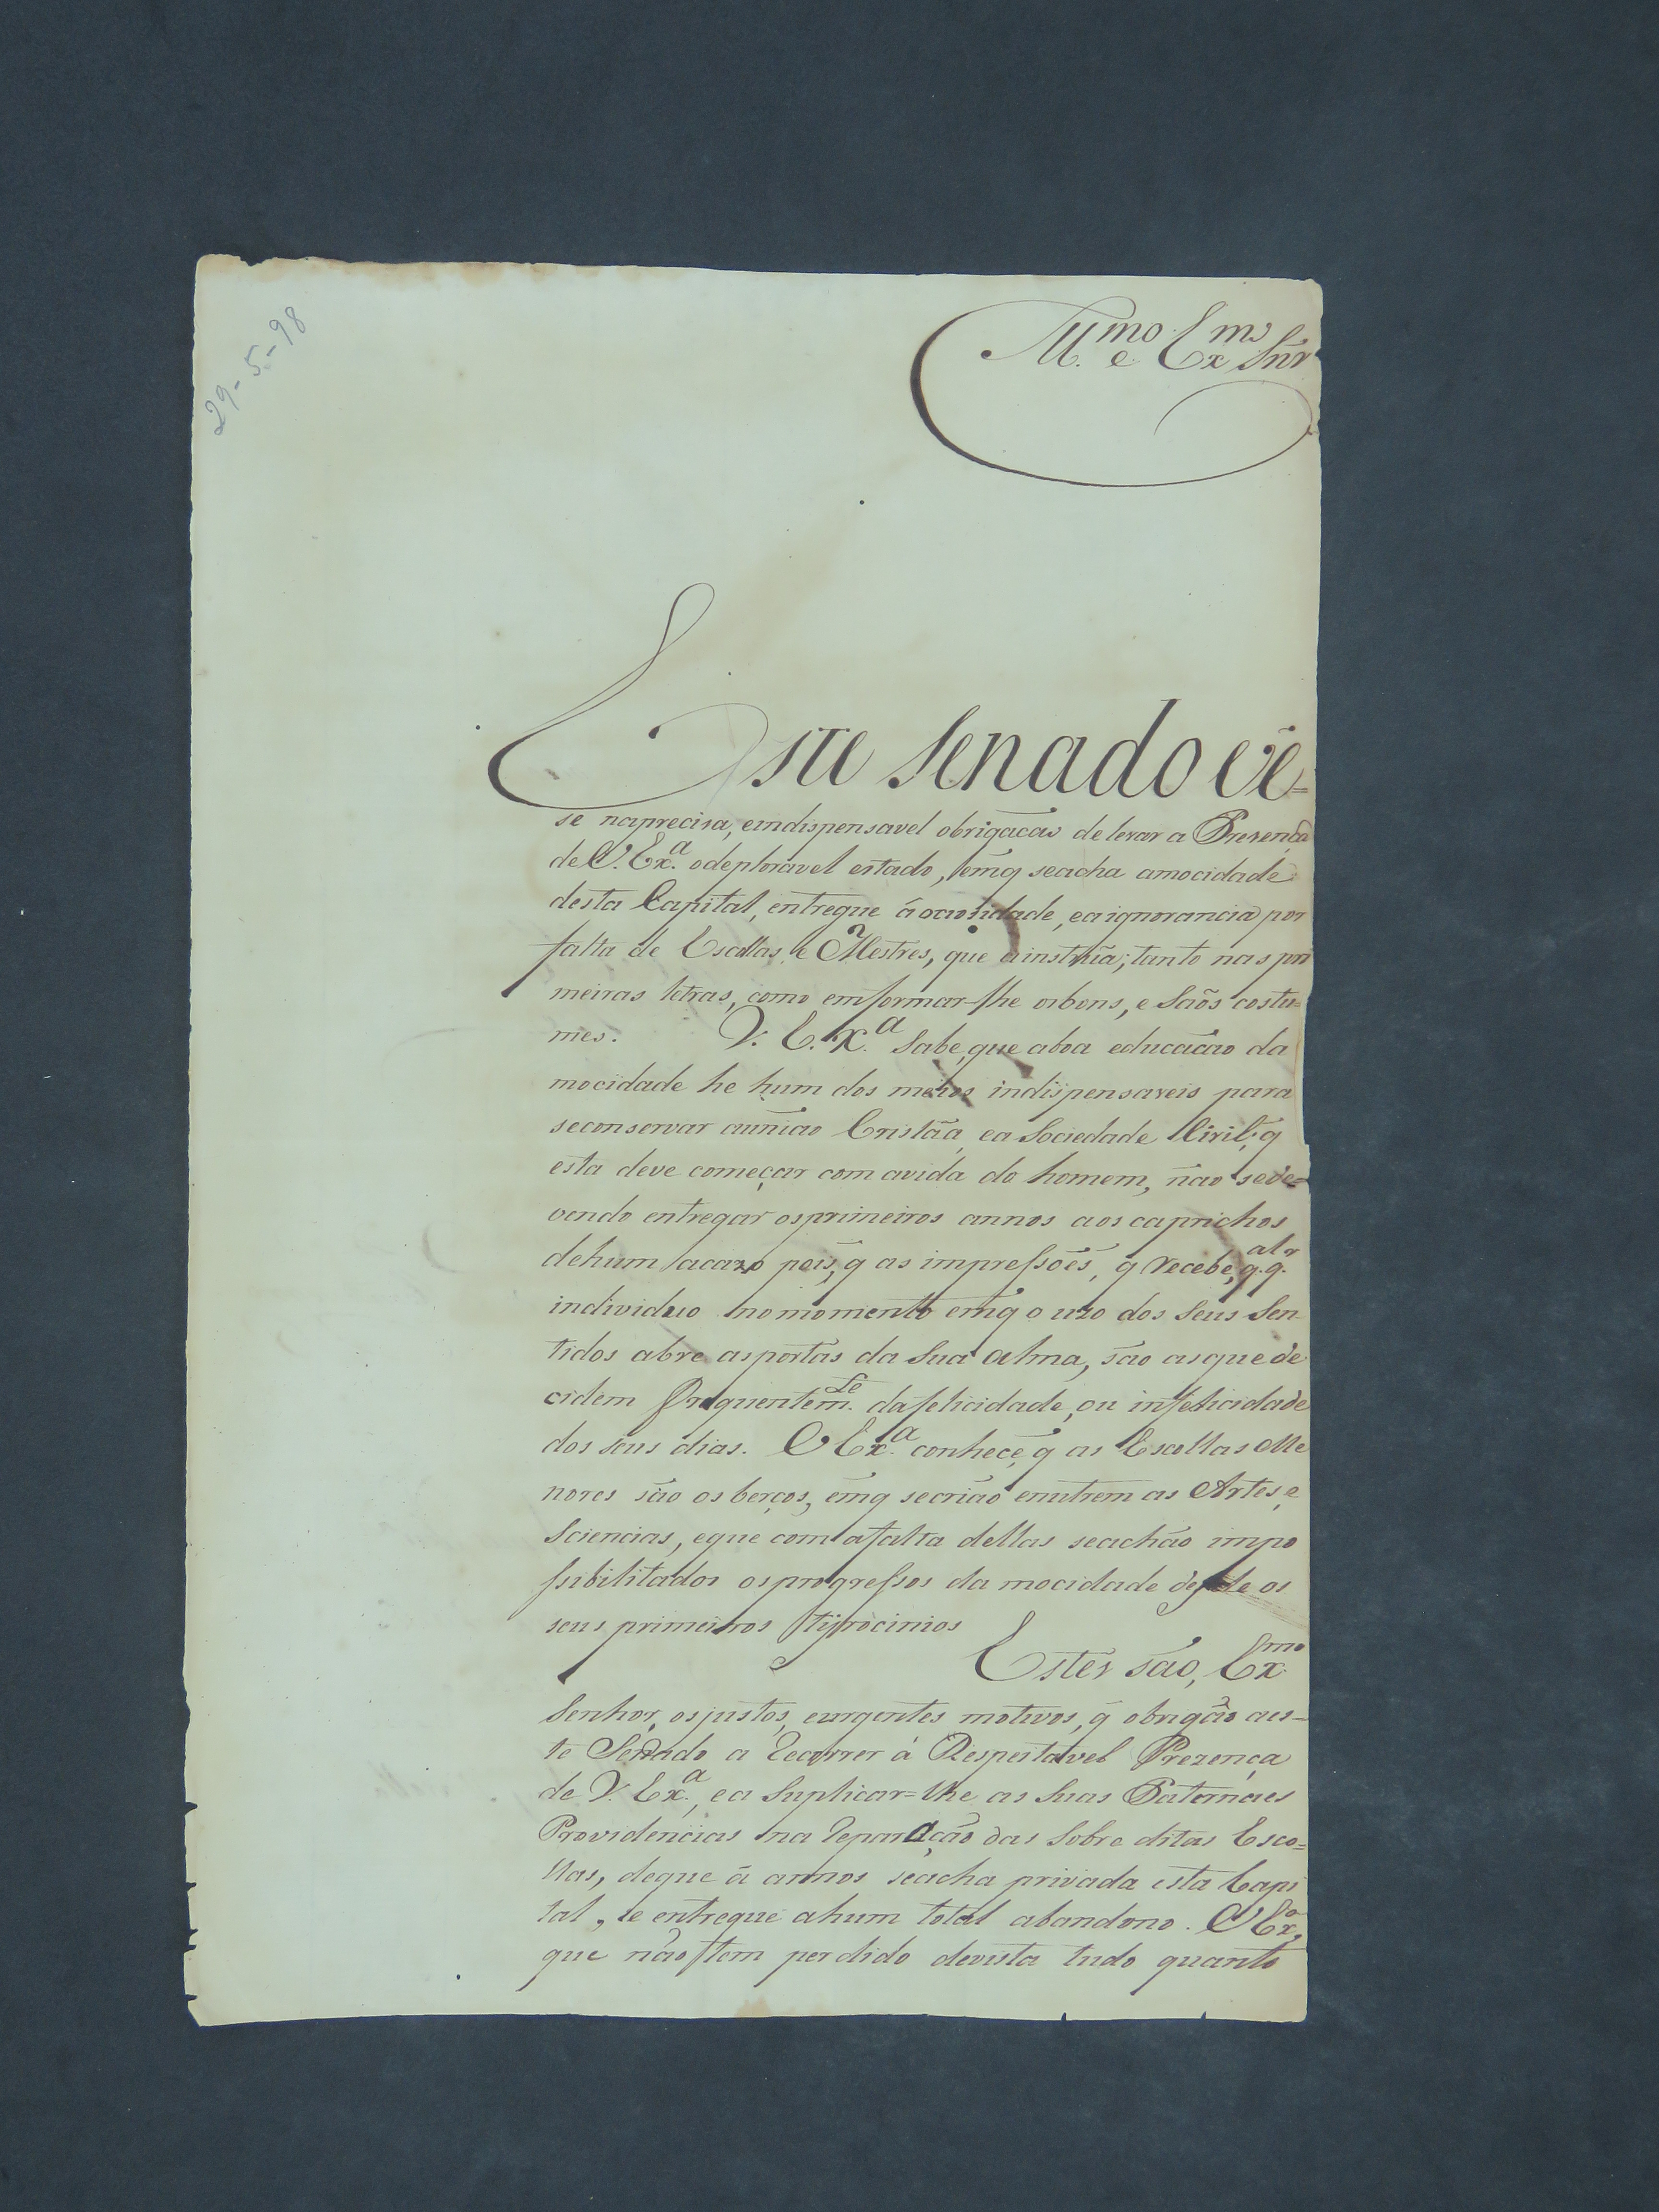 29-5-98
Ill.mo e Ex.mo Snr
Este Senado vê-
se naprecisa, eindispensavel obrigação delevar a Prezença
de V. Ex.a odeploravel estado, emq seacha amocidade
desta Capital, entregue áociozidade, eaignorancia por
falta de Escollas, e Mestres, que ainstruã, tanto nas pri
meiras letras, como emformar-lhe osbons, e Sãos costu=
mes. V. Ex.a Sabe, que aboa educação da
mocidade he hum dos meios indispensaveis para
seconservar aunião Cristãa, ea Sociedade Civil, q
esta deve começar com avida do homem, não sede=
vendo entregar osprimeiros annos aos caprichos
dehum acazo pois, q as impressões, q recebe, q.q.al
individuo nomomento emq o uzo dos Seus Sen-
tidos abre asportas da Sua Alma, são asque de
cidem frequentem.te dafelicidade, ou infelicidade
dos seus dias. V Ex.a conhece, q as Escollas Me
nores são os berços, emq secrião enutrem as Artes, e
Sciencias, eque com afalta dellas seachão impo
ssibilitados osprogressos da mocidade desde os
seus primeiros tijrocinios
Estes são, Ex.mo
Senhor, osjustos, eurgentes motivos, q obrigão aes=
te Senado a recorrer á Respeitavel Prezença
de V. Ex.a, ea Suplicar=lhe as Suas Paternaes
Providencias na reparação das Sobre ditas Esco=
llas, deque á annos seacha privada esta Capi
tal, e entregue ahum total abandono. V Ex.a,
que não tem perdido devista tudo quanto